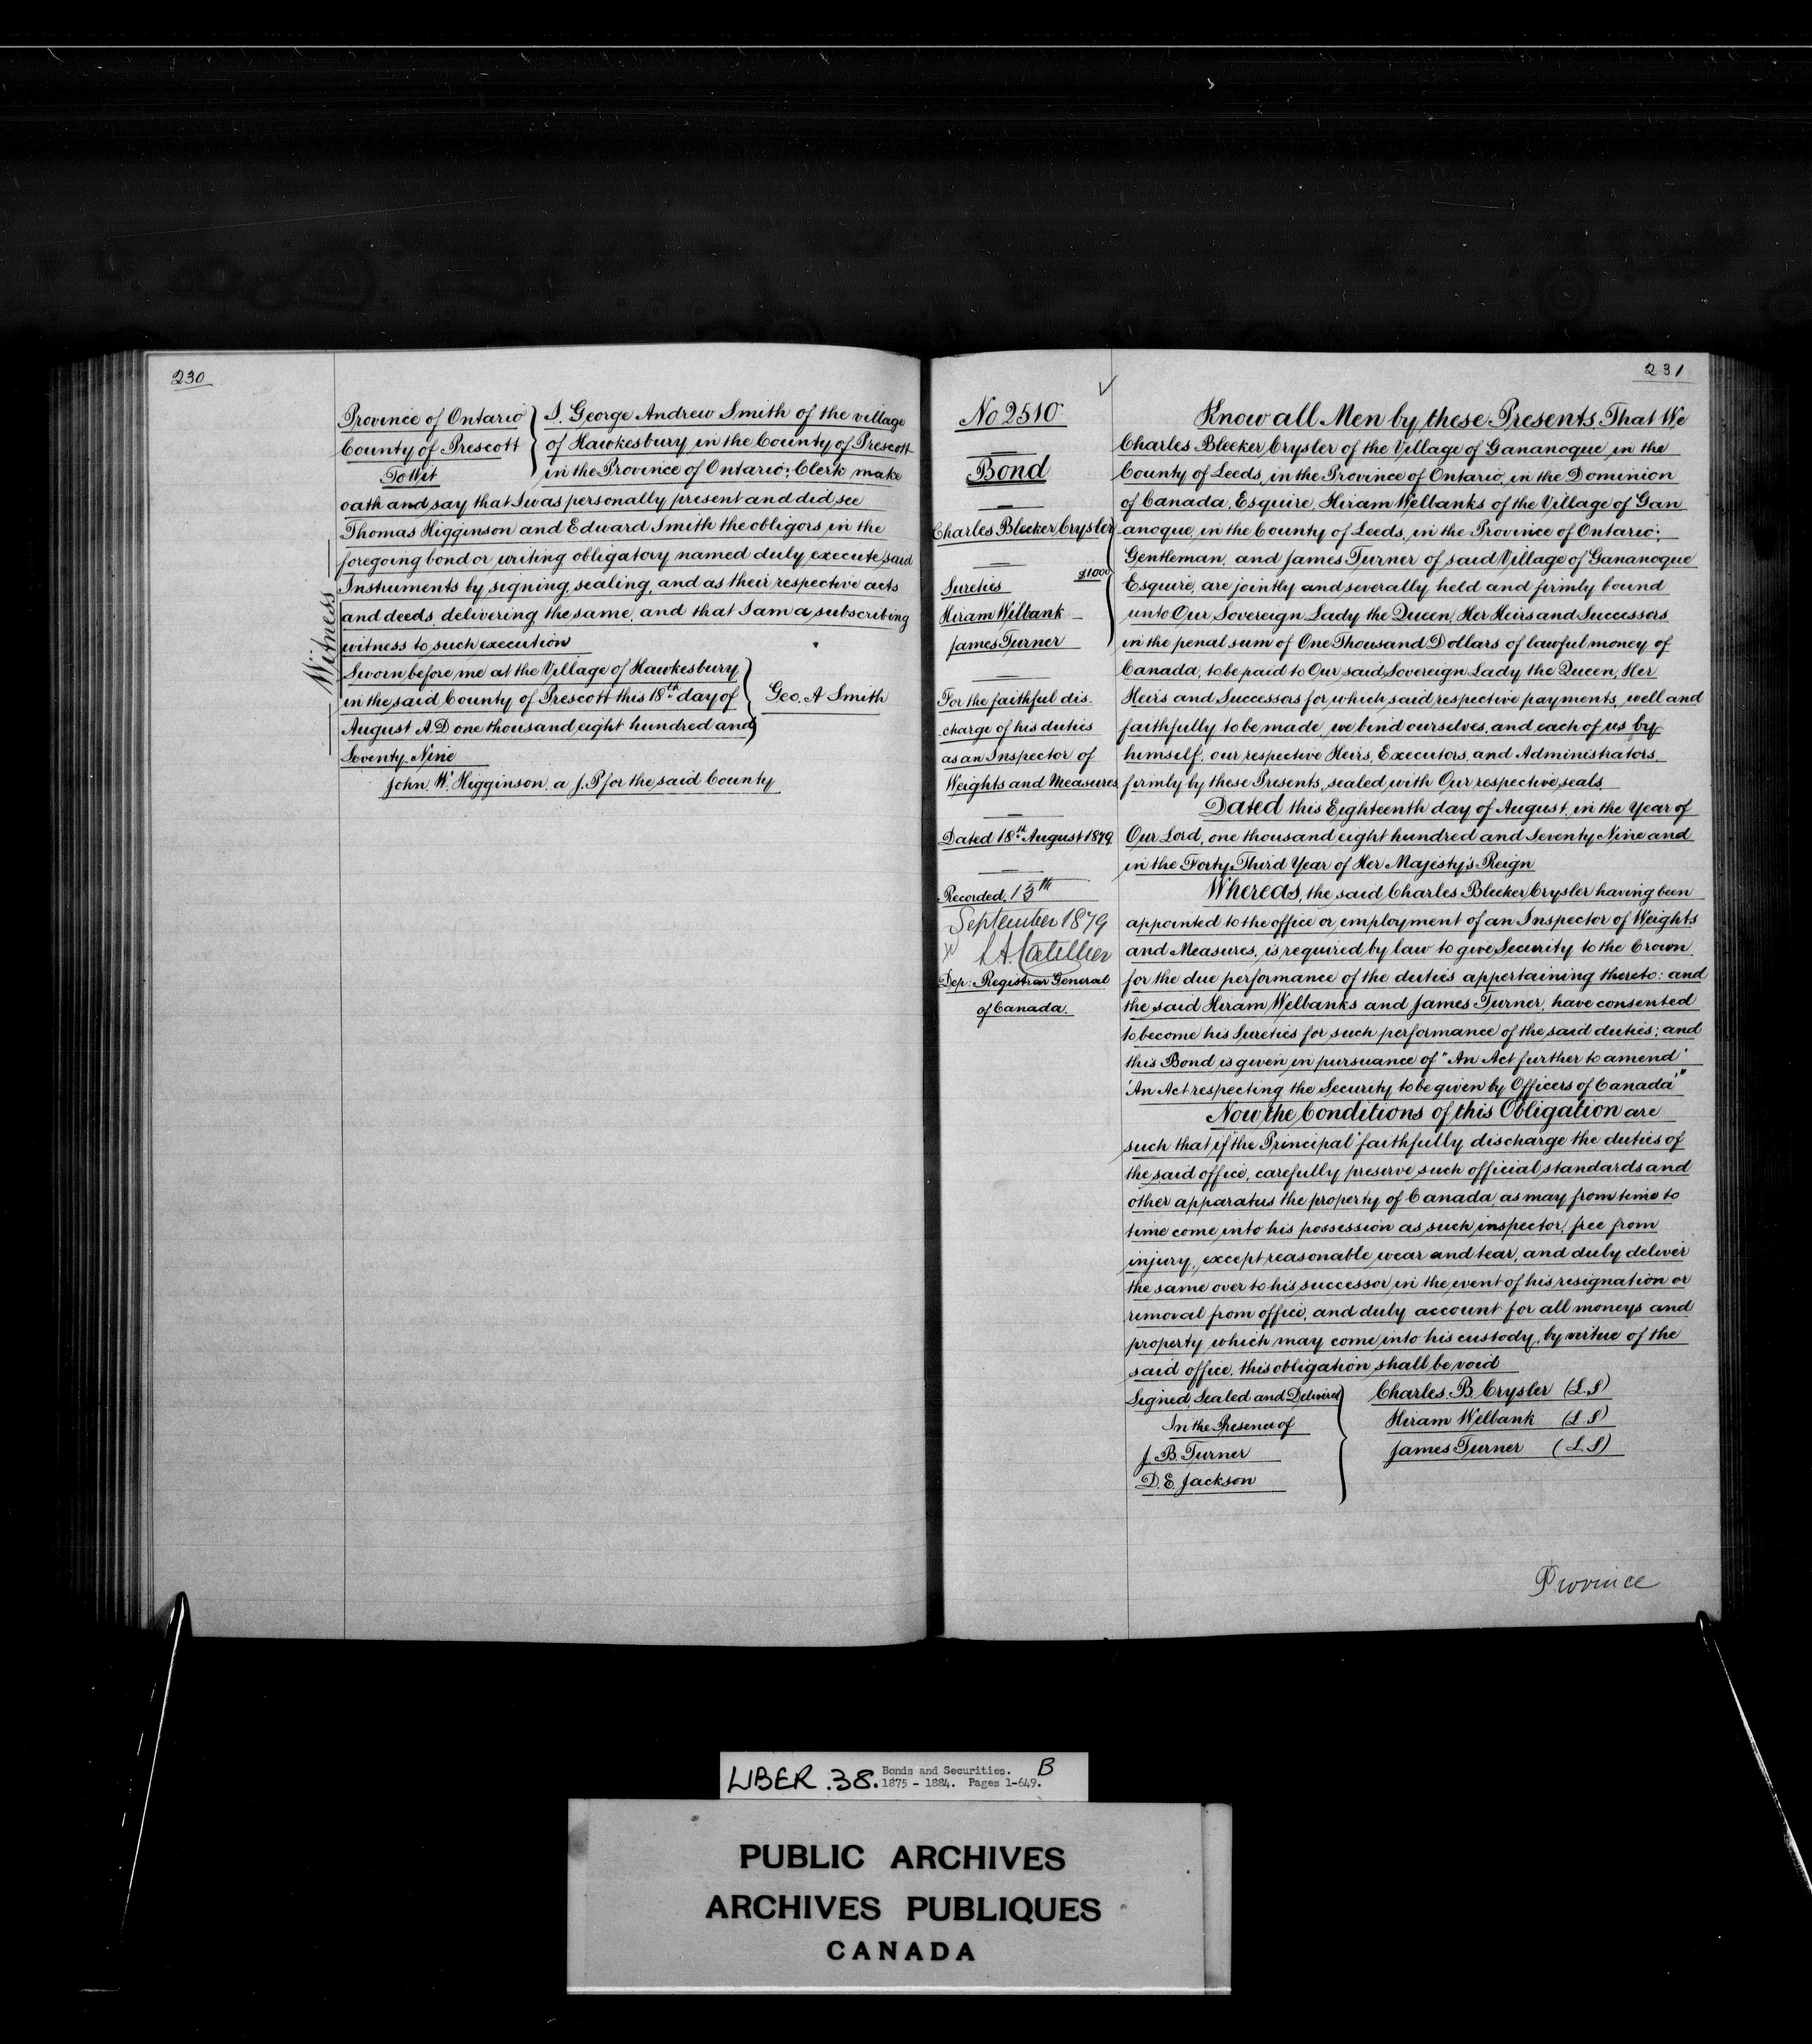 230
Province of Ontario
County of Prescott
To Wit
I. George Andrew Smith of the village
of Hawkesbury in the County of Prescott
in the Province of Ontario: Clerk make
oath and say that I was personally present and did see
Thomas Higginson and Edward Smith the obligors, in the
foregoing bond or writing obligatory named duly execute, said
Instruments by signing, sealing, and as their respective acts
and deeds, delivering the same, and that I am a subscribing
witness to such execution
Witness
Sworn before me at the Village of Hawkesbury
in the said County of Prescott this 18th day of
August A.D one thousand eight hundred and
Seventy-Nine
Geo. A Smith
John. W. Higginson, a J.P for the said County
231
No 2510
Bond
Charles Bleeker Crysler
$1000
Sureties
Hiram Wilbank
James Turner
For the faithful dis-
charge of his duties
as an Inspector of
Weights and Measures
Dated 18th August 1879.
Recorded, 13th
September 1879
Dep: Registrar General
of Canada.
Know all Men by these Presents, That We
Charles Bleeker Crysler of the Village of Gananoque in the
County of Leeds, in the Province of Ontario, in the Dominion
of Canada, Esquire, Hiram Welbanks of the Village of Gan
anoque, in the County of Leeds, in the Province of Ontario;
Gentleman, and James Turner of said Village of Gananoque
Esquire, are jointly and severally held and firmly bound
unto Our Sovereign Lady the Queen, Her Heirs and Successors
in the penal sum of One Thousand Dollars of lawful money of
Canada, to be paid to Our said Sovereign Lady the Queen, Her
Heirs and Successors for which said respective payments, well and
faithfully to be made, we bind ourselves, and each of us by
himself, our respective Heirs, Executors, and Administrators,
firmly by these Presents, sealed with Our respective seals.
Dated this Eighteenth day of August, in the Year of
Our Lord, one thousand eight hundred and Seventy Nine and
in the Forty-Third Year of Her Majesty's Reign
Whereas, the said Charles Bleeker Crysler having been
appointed to the office or employment of an Inspector of Weights
and Measures, is required by law to give Security to the Crown
for the due performance of the duties appertaining thereto: and
the said Hiram Welbanks and James Turner, have consented
to become his Sureties for such performance of the said duties; and
this Bond is given in pursuance of "An Act further to amend'
'An Act respecting the Security to be given by Officers of Canada'"
Now, the Conditions of this Obligation are
such that if the Principal faithfully discharge the duties of
the said office, carefully preserve such official standards and
other apparatus the property of Canada, as may from time to
time come into his possession as such inspector, free from
injury, except reasonable wear and tear, and duly deliver
the same over to his successor in the event of his resignation or
removal from office, and duly account for all moneys and
property which may come into his custody, by virtue of the
said office, this obligation shall be void
Signed, Sealed and Delivered
In the Presence of
J. B. Turner
D. E. Jackson
Charles. B. Crysler (L.S)
Hiram Welbank (L S)
James Turner (L.S)
Province
LIBER .38. Bonds and Securities. B
1875 - 1884. Pages 1-649.
PUBLIC ARCHIVES
ARCHIVES PUBLIQUES
CANADA